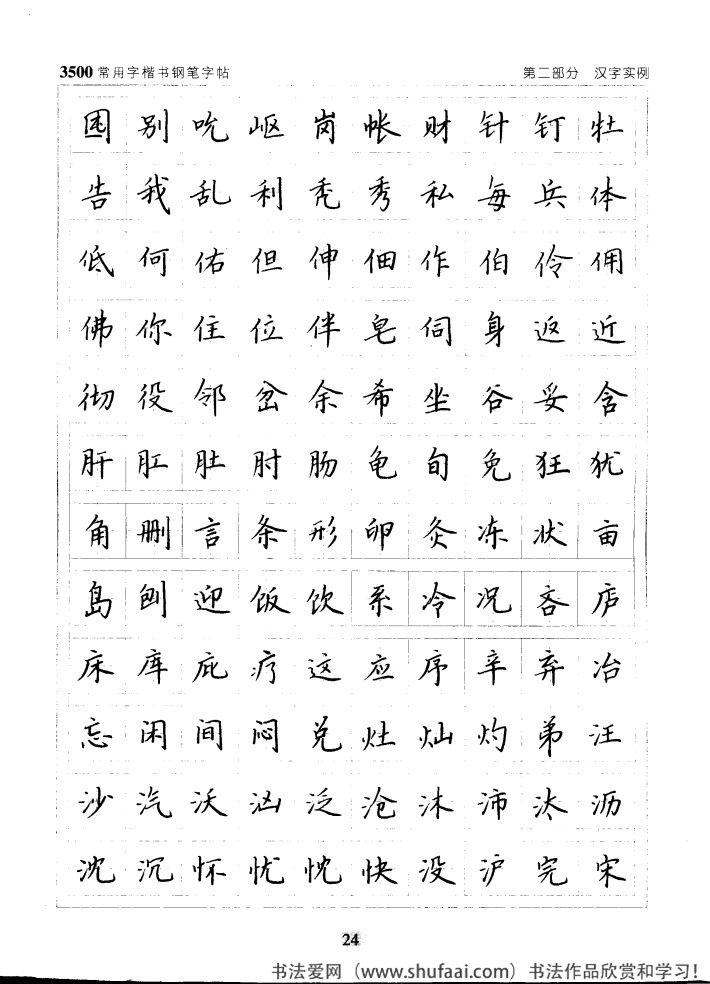 3500 常用字楷书钢笔字帖 第二部分 汉字实例
困 别 吮 岖 岗 帐 财 针 钉 牡
告 我 乱 利 秃 秀 私 每 兵 体
低 何 佑 但 伸 佃 作 伯 伶 佣
佛 你 住 位 伴 皂 伺 身 返 近
彻 役 邻 岔 余 希 坐 谷 妥 含
肝 肛 肚 肘 肠 龟 旬 免 狂 犹
角 删 言 条 形 卵 灸 冻 状 亩
岛 刨 迎 饭 饮 系 冷 况 吝 庐
床 库 庇 疗 这 应 序 辛 弃 冶
忘 闲 间 闷 兑 灶 灿 灼 弟 汪
沙 汽 沃 汹 泛 沧 沐 沛 汰 沥
沈 沉 怀 忧 忱 快 没 沪 完 宋
24
书法爱网（www.shufaai.com）书法作品欣赏和学习！